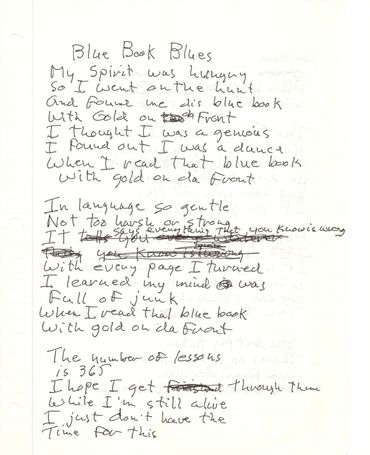 Blue Book Blues
My Spirit was hungry
So I went on the hunt
And Found me dis blue book
With Gold on da Front
I thought I was a genious
I Found out I was a dunce
When I read that blue book
With gold on da Front
In language so gentle
Not too harsh or strong
It says everything that you Know is wrong
With every page I turned
I learned my mind was
Full of junk
When I read that blue book
With gold on da Front
The number of lessons
is 365
I hope I get through them
While I'm still alive
I just don't have the
Time for this